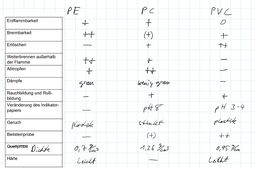 PE PC PVC
Entflammbarkeit + + 0
Brennbarkeit ++ (+) +
Erlöschen — + ++
Weiterbrennen außerhalb der Flamme ++ + —
Abtropfen + ++ —
Dämpfe grau wenig grau
Rauchbildung und Rußbildung — + +
Veränderung des Indikatorpapiers — pH 8 pH 3-4
Geruch plastik stinkt plastik
Beilsteinprobe — (+) ++
Querprobe Dichte 0,7 g/cm3 1.26 g/cm3 0,95 g/cm3
Härte leicht — leicht